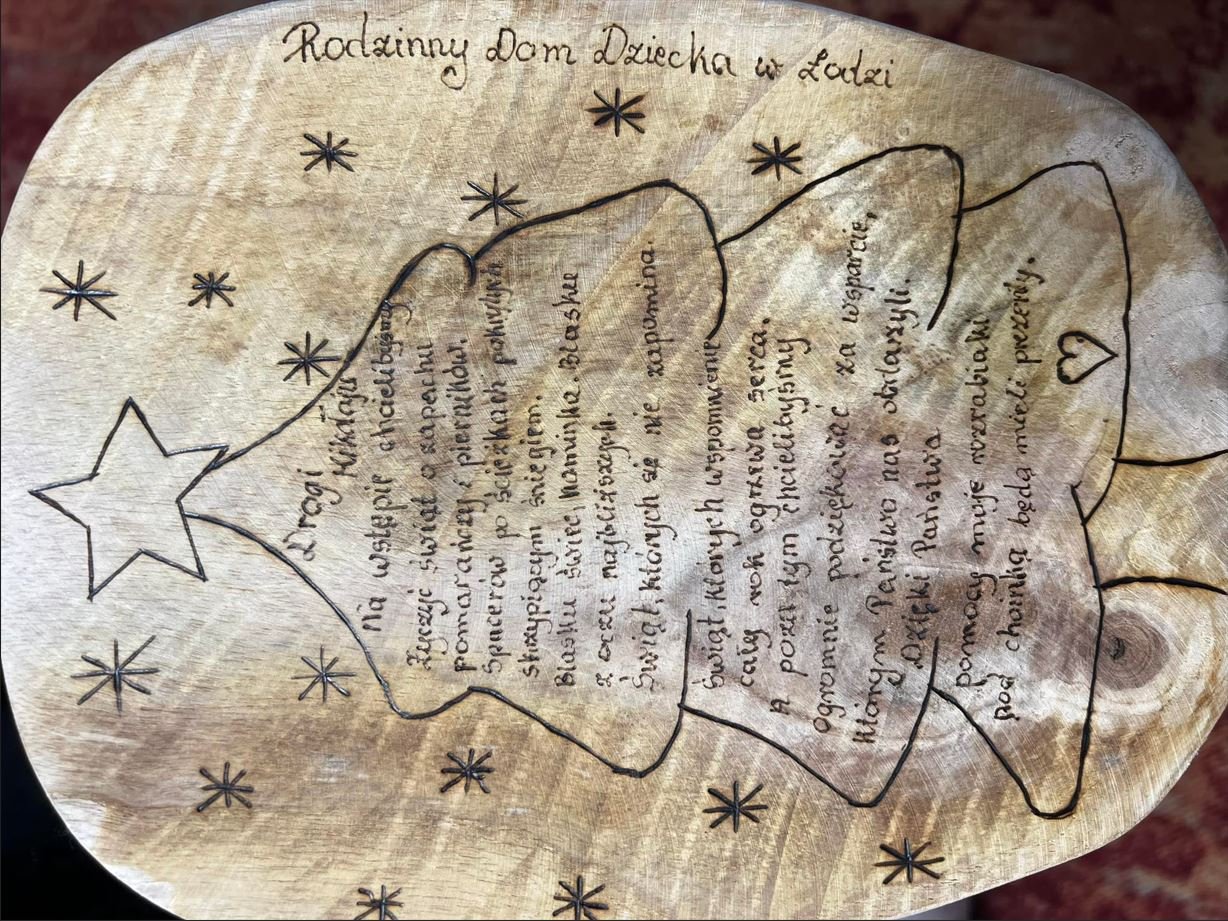 Rodzinny Dom Dziecka w Łodzi
Drogi
Mikołaju
Na wstępie chcielibyśmy
życzyć świąt o zapachu
pomarańczy i pierników.
Spacerów po ścieżkach pokrytych
skrzypiącym śniegiem.
Blasku świec, kominka. Blasku
z oczu najbliższych.
Świąt, których się nie zapomina.
Świąt, których wspomnienie
cały rok ogrzewa serca.
A poza tym chcielibyśmy
Ogromnie podziękować za wsparcie,
którym Państwo nas obdarzyli.
Dzięki Państwa
pomocy moje wzrabiaki
pod choinką będą mieli prezenty.